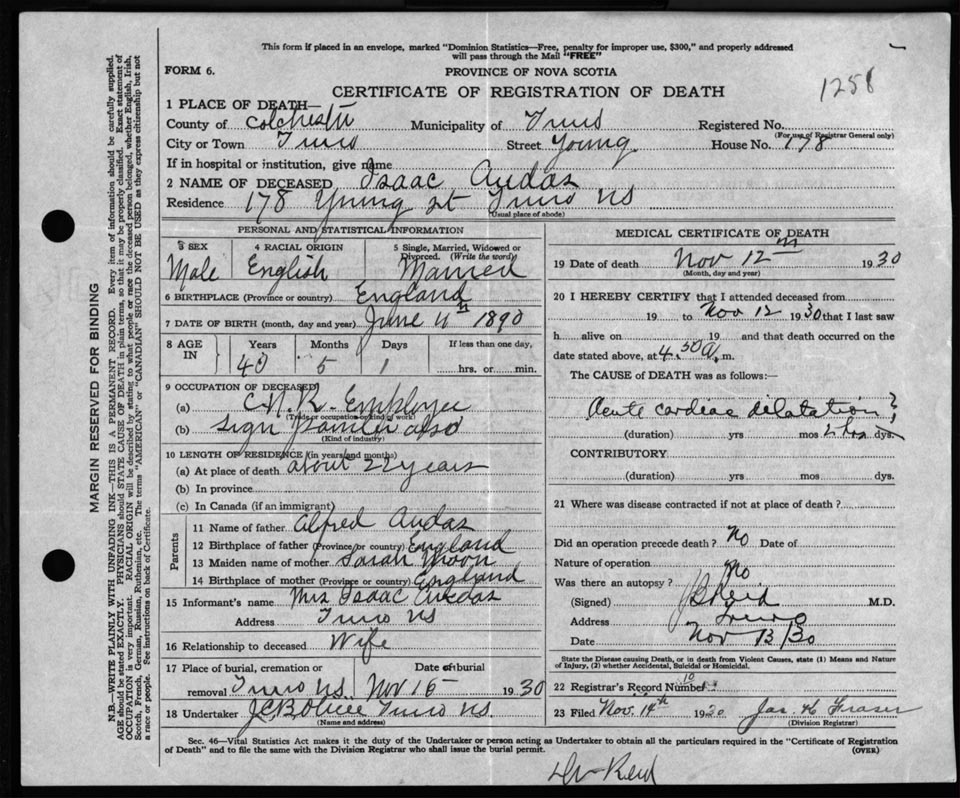 This form if placed in an envelope, marked "Dominion Statistics—Free, penalty for improper use, $300," and properly addressed
will pass through the Mail "FREE"
FORM 6.
PROVINCE OF NOVA SCOTIA
1258
CERTIFICATE OF REGISTRATION OF DEATH
1 PLACE OF DEATH—
County of Colchester Municipality of Truro Registered No.
(For use of Registrar General only)
City or Town Truro Street Young House No. 178
If in hospital or institution, give name
2 NAME OF DECEASED Isaac Audas
Residence 178 Young st Truro NS
(Usual place of abode)
PERSONAL AND STATISTICAL INFORMATION
3 SEX 4 RACIAL ORIGIN 5 Single, Married, Widowed or
Divorced. (Write the word)
Male English Married
6 BIRTHPLACE (Province or country) England
7 DATE OF BIRTH (month, day and year) June 11th 1890
8 AGE IN Years Months Days If less than one day,
40 5 1 hrs. or min.
9 OCCUPATION OF DECEASED
(a) C.N.R. Employee
(Trade or occupation or kind of work)
(b) Sign Painter also
(Kind of industry)
10 LENGTH OF RESIDENCE (in years and months)
(a) At place of death about 22 years
(b) In province
(c) In Canada (if an immigrant)
Parents
11 Name of father Alfred Audas
12 Birthplace of father (Province or country) England
13 Maiden name of mother Sarah Moon
14 Birthplace of mother (Province or country) England
15 Informant's name Mrs Isaac Audas
Address Truro NS
16 Relationship to deceased Wife
17 Place of burial, cremation or Date of burial
removal Truro NS. Nov 15 1930
18 Undertaker Truro NS.
(Name and address)
MEDICAL CERTIFICATE OF DEATH
19 Date of death Nov 12th 1930
(Month, day and year)
20 I HEREBY CERTIFY that I attended deceased from
19 to Nov 12 1930 that I last saw
h alive on 19 and that death occurred on the
date stated above, at 4.50 a. m.
The CAUSE of DEATH was as follows:—
Acute cardiac dilatation
(duration) yrs mos 2 hrs dys.
CONTRIBUTORY
(duration) yrs mos dys.
21 Where was disease contracted if not at place of death?
Did an operation precede death? No Date of
Nature of operation
Was there an autopsy? No
(Signed) Reid M.D.
Address Truro
Date Nov 13/30
State the Disease causing Death, or in death from Violent Causes, state (1) Means and Nature
of Injury, (2) whether Accidental, Suicidal or Homicidal.
22 Registrar's Record Number
23 Filed Nov. 14th 1930 Jas. H Fraser
(Division Registrar)
Sec. 46—Vital Statistics Act makes it the duty of the Undertaker or person acting as Undertaker to obtain all the particulars required in the "Certificate of Registration
of Death" and to file the same with the Division Registrar who shall issue the burial permit.
(OVER)
Dr Reid
MARGIN RESERVED FOR BINDING
N.B.—WRITE PLAINLY WITH UNFADING INK—THIS IS A PERMANENT RECORD. Every item of information should be carefully supplied.
AGE should be stated EXACTLY. PHYSICIANS should STATE CAUSE OF DEATH in plain terms, so that it may be properly classified. Exact statement of
OCCUPATION is very important. RACIAL ORIGIN will be described by stating to what people or race the deceased person belonged, whether English, Irish,
Scotch, French, German, Russian, Ruthenian, etc. The terms "AMERICAN" or "CANADIAN" SHOULD NOT BE USED as they express citizenship but not
a race or people. See instructions on back of Certificate.